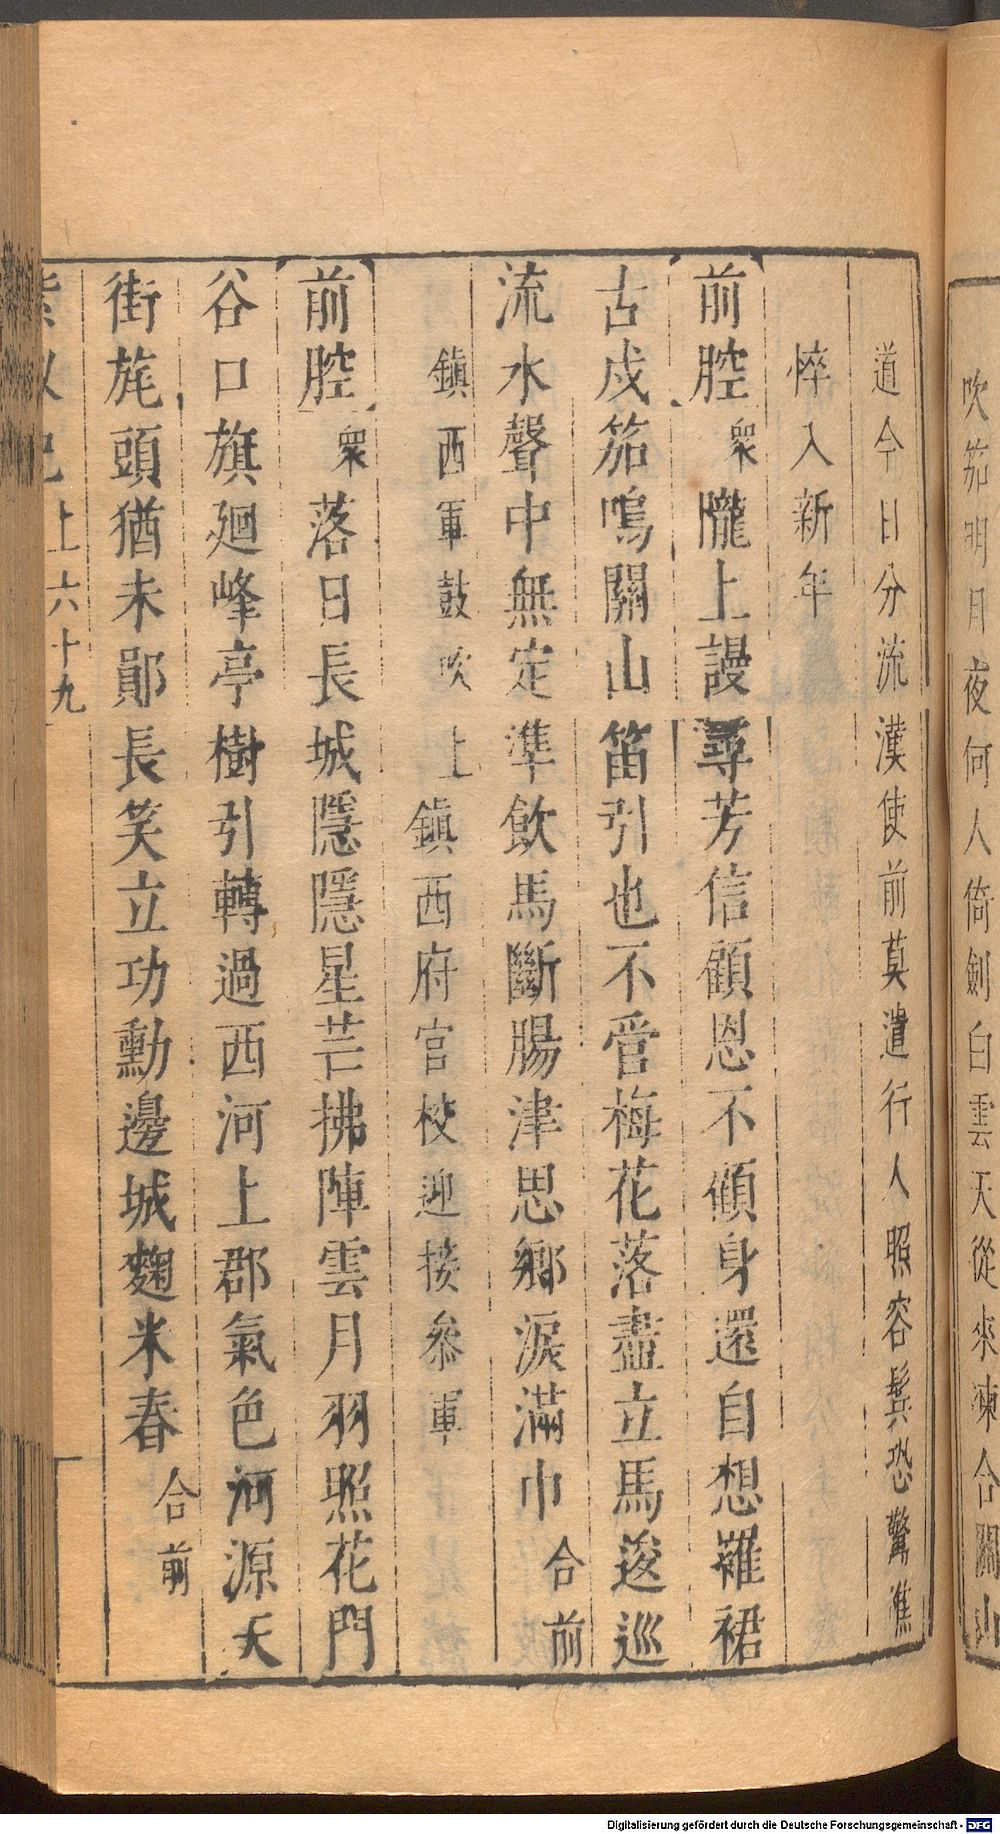 吹笳明月夜何人倚劍白雲天從來凍合關山
道今日分流漢使前莫遣行人照容鬂恐驚憔
悴入新年
前腔 衆 隴上謾尋芳信顧恩不顧身還自想羅裙
古戍笳鳴關山笛引也不管梅花落盡立馬逡巡
流水聲中無定準飲馬斷腸津思鄉淚滿巾 合前
鎮西軍鼓吹上鎮西府官校迎接叅軍
前腔 衆 落日長城隱隱星芒拂陣雲月羽照花門
谷口旗廻峰亭樹引轉過西河上郡氣色河源天
街旄頭猶未鄖長笑立功勳邊城麴米春 合前
上 六十九
Digitalisierung gefördert durch die Deutsche Forschungsgemeinschaft - DFG